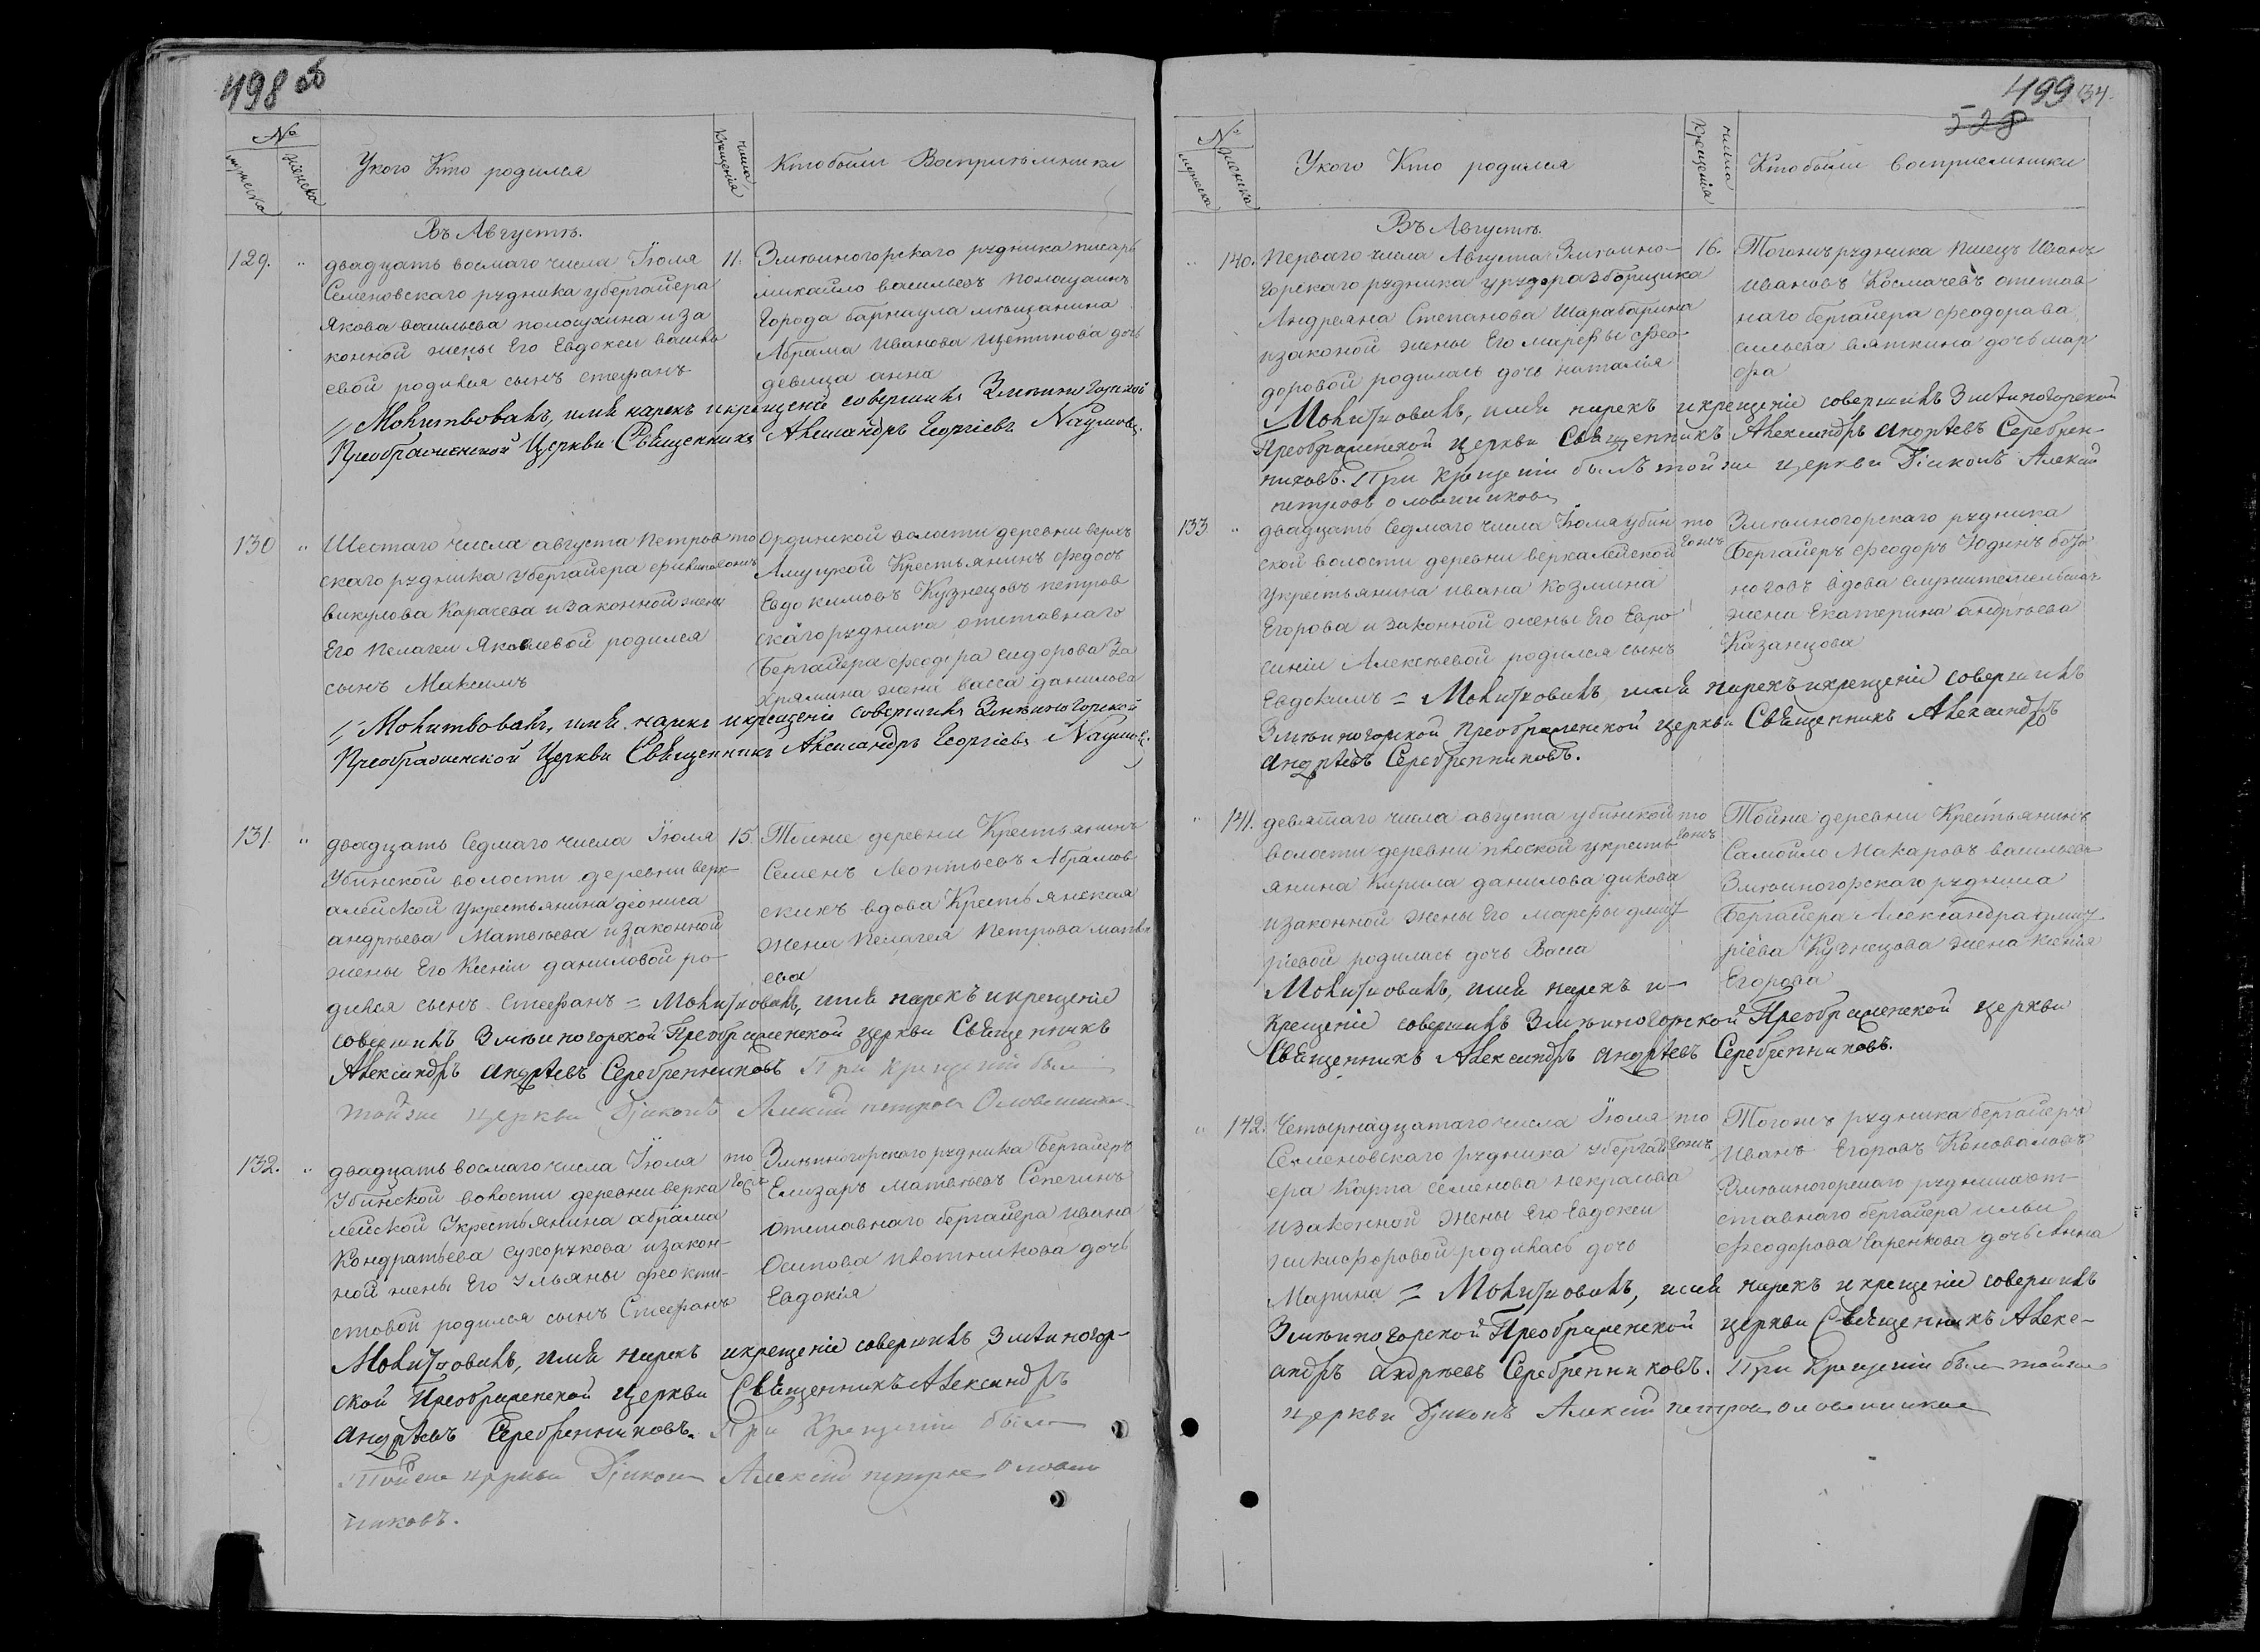 498 об
№
мужеска
женска
Укого Кто родился
числа Крещенія
Ктобыли Воспріѣмники
Въ Августѣ.
129. „ двадцать восмаго числа Іюля
Семеновскаго рудника убергайера
Якова васильева полосухина иза
конной жены Его Евдокеи васил
евой родился сынъ стефанъ
11. Змѣиногорскаго рудника писарь
михайло васильевъ
Города барнаула мѣщанина
Абрама Иванова щетинкова дочь
девица анна
Молитвовалъ, имя нарекъ икрещеніе совершилъ Змѣиногорской
Преображенской Церкви Священникъ Александръ Георгіевъ Наумовъ.
130 „ Шестаго числа августа Петров
скаго рудника убергайера
викулова Карачева изаконной жены
Его пелагеи Яковлевой родился
сынъ Максимъ
тогожъ
Ординской волости деревни верхъ
Крестьянинъ федосъ
Евдокимовъ Кузнецовъ петров
скаго рудника отставнаго
бергайера феодора сидорова За
жена васса данилова
Молитвовалъ, имя нарекъ икрещеніе совершилъ Змѣиногорской
Преображенской Церкви Священникъ Александръ Георгіевъ Наумовъ
131. „ двадцать Седмаго числа Іюля
Убинской волости деревни верх
алейской укрестьянина деониса
андрѣева Матвѣева изаконной
жены Его Ксеніи даниловой ро
дился сынъ Стефанъ = Молитвовалъ, имя нарекъ икрещеніе
15. Тойже деревни Крестьянинъ
Семенъ Леонтьевъ Абрамов
скихъ вдова Крестьянская
жена пелагея Петрова матвѣ
ева
совершилъ Змѣиногорской Преображенской церкви Священникъ
Александръ Андрѣевъ Серебренниковъ При Крещеніи былъ
тойже церкви Діаконъ Алексій петровъ Оловянишниковъ
132. „ двадцать восмаго числа Іюля
Убинской волости деревни верха
лейской Укрестьянина абрама
Кондратьева сухорукова изакон
ной жены Его Ульяны феокти
стовой родился сынъ Стефанъ
тогоже
Змѣиногорскаго рудника Бергайеръ
Елизаръ Матвѣевъ Сапегинъ
отставнаго бергайера ивана
Осипова плотникова дочь
Евдокія
Молитвовалъ, имя нарекъ икрещеніе совершилъ Змѣиногор-
ской Преображенской Церкви Священникъ Александръ
Андрѣевъ Серебренниковъ. При Крещеніи былъ
Тойже церкви Діаконъ Алексій петровъ Оловяни
никовъ.
499
528
№
мужеска
женска
Укого Кто родился
числа Крещенія
Ктобыли воспріемники
Въ Августѣ.
„ 140. Перваго числа Августа Змѣино-
горскаго рудника урудоразборщика
Андреяна Степанова Шарабарина
изаконой жены Его марфы фео
доровой родилась дочь наталія
16. Тогожъ рудника писецъ Иванъ
ивановъ Космачевъ отстав
наго бергайера феодорава
сильева вяткина дочь мар
фа
Молитвовалъ, имя нарекъ икрещеніе совершилъ Змѣиногорской
Преображенской церкви Священникъ Александръ Андрѣевъ Серебрен-
никовъ. При Крещеніи былъ тойже церкви Діаконъ Алексій
петровъ оловянишниковъ
133 „ двадцать Седмаго числа Іюля убин
ской волости деревни верхалейской
укрестьянина ивана Козмина
Егорова изаконной жены Его Евро
синіи Алексѣевой родился сынъ
тогожъ
Змѣиногорскаго рудника
Бергайеръ феодоръ Юдинъ
вдова
жена Екатерина андрѣева
Казанцова
Евдокимъ = Молитвовалъ, имя нарекъ икрещеніе совершилъ
Змѣиногорской Преображенской церкви Священникъ Александръ
Андрѣевъ Серебренниковъ.
„ 141. девятаго числа августа убинской
волости деревни плоской укресть
янина Кирила данилова дикова
изаконной жены Его марфы дмит
ріевой родилась дочь Васса
тогожъ
Тойже деревни Крестьянинъ
Самойло Макаровъ васильевъ
Змѣиногорскаго рудника
бергайера Александра дмит
ріева Кузнецова жена ксенія
Егорова
Молитвовалъ, имя нарекъ и-
крещеніе совершилъ Змѣиногорской Преображенской церкви
Священникъ Александръ Андрѣевъ Серебренниковъ.
„ 142. Четырнадцатаго числа Іюля
Семеновскаго рудника убергай
ера Карпа семенова некрасова
изаконной жены Его Евдокеи
никифоровой родилась дочь
тогожъ
Тогожъ рудника бергайеръ
Иванъ Егоровъ Коноваловъ
Змѣиногорскаго рудника от
ставнаго бергайера ильи
феодорова Царенкова дочь Анна
Марина = Молитвовалъ, имя нарекъ икрещеніе совершилъ
Змѣиногорской Преображенской церкви Священникъ Алекс-
андръ Андрѣевъ Серебренниковъ. При Крещеніи былъ тойже
церкви Діаконъ Алексій петровъ оловянишниковъ